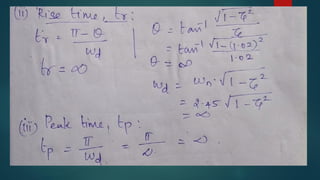 (ii) Rise time, tr:
tr = π - θ / ωd
tr = ∞
θ = tan⁻¹ √1-ζ² / ζ
= tan⁻¹ √1-(1.02)² / 1.02
θ = ∞
ωd = ωn . √1-ζ²
= 2.45 √1-ζ²
= ∞
(iii) Peak time, tp:
tp = π / ωd = π / = ∞